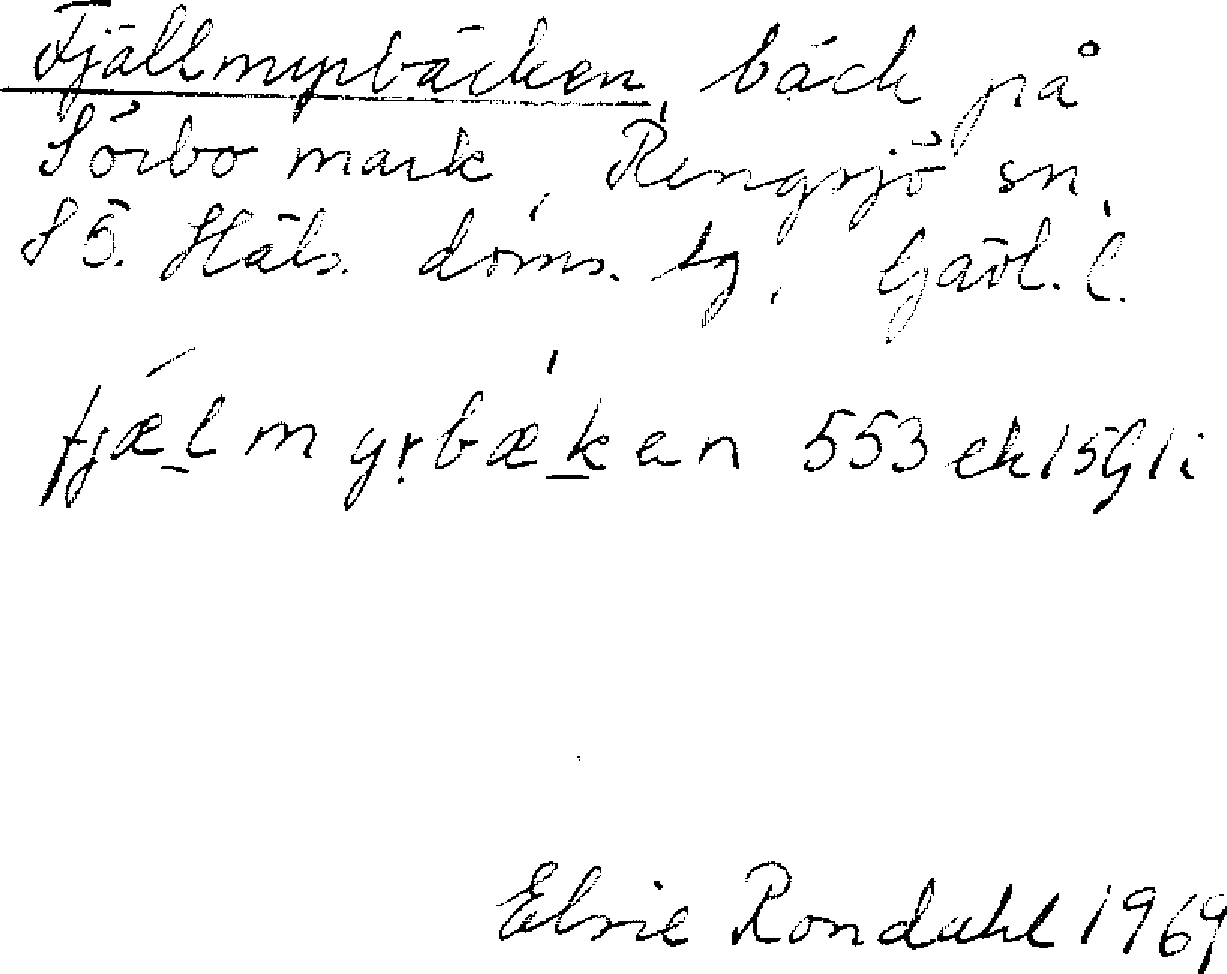 Fjällmyrbäcken, bäck på
Sörbo mark, Rengsjö sn,
SÖ. Häls. doms. tg, Gävl. l.
fjælmyrbækan 553 ek 15G1i
Elsie Rondahl 1969